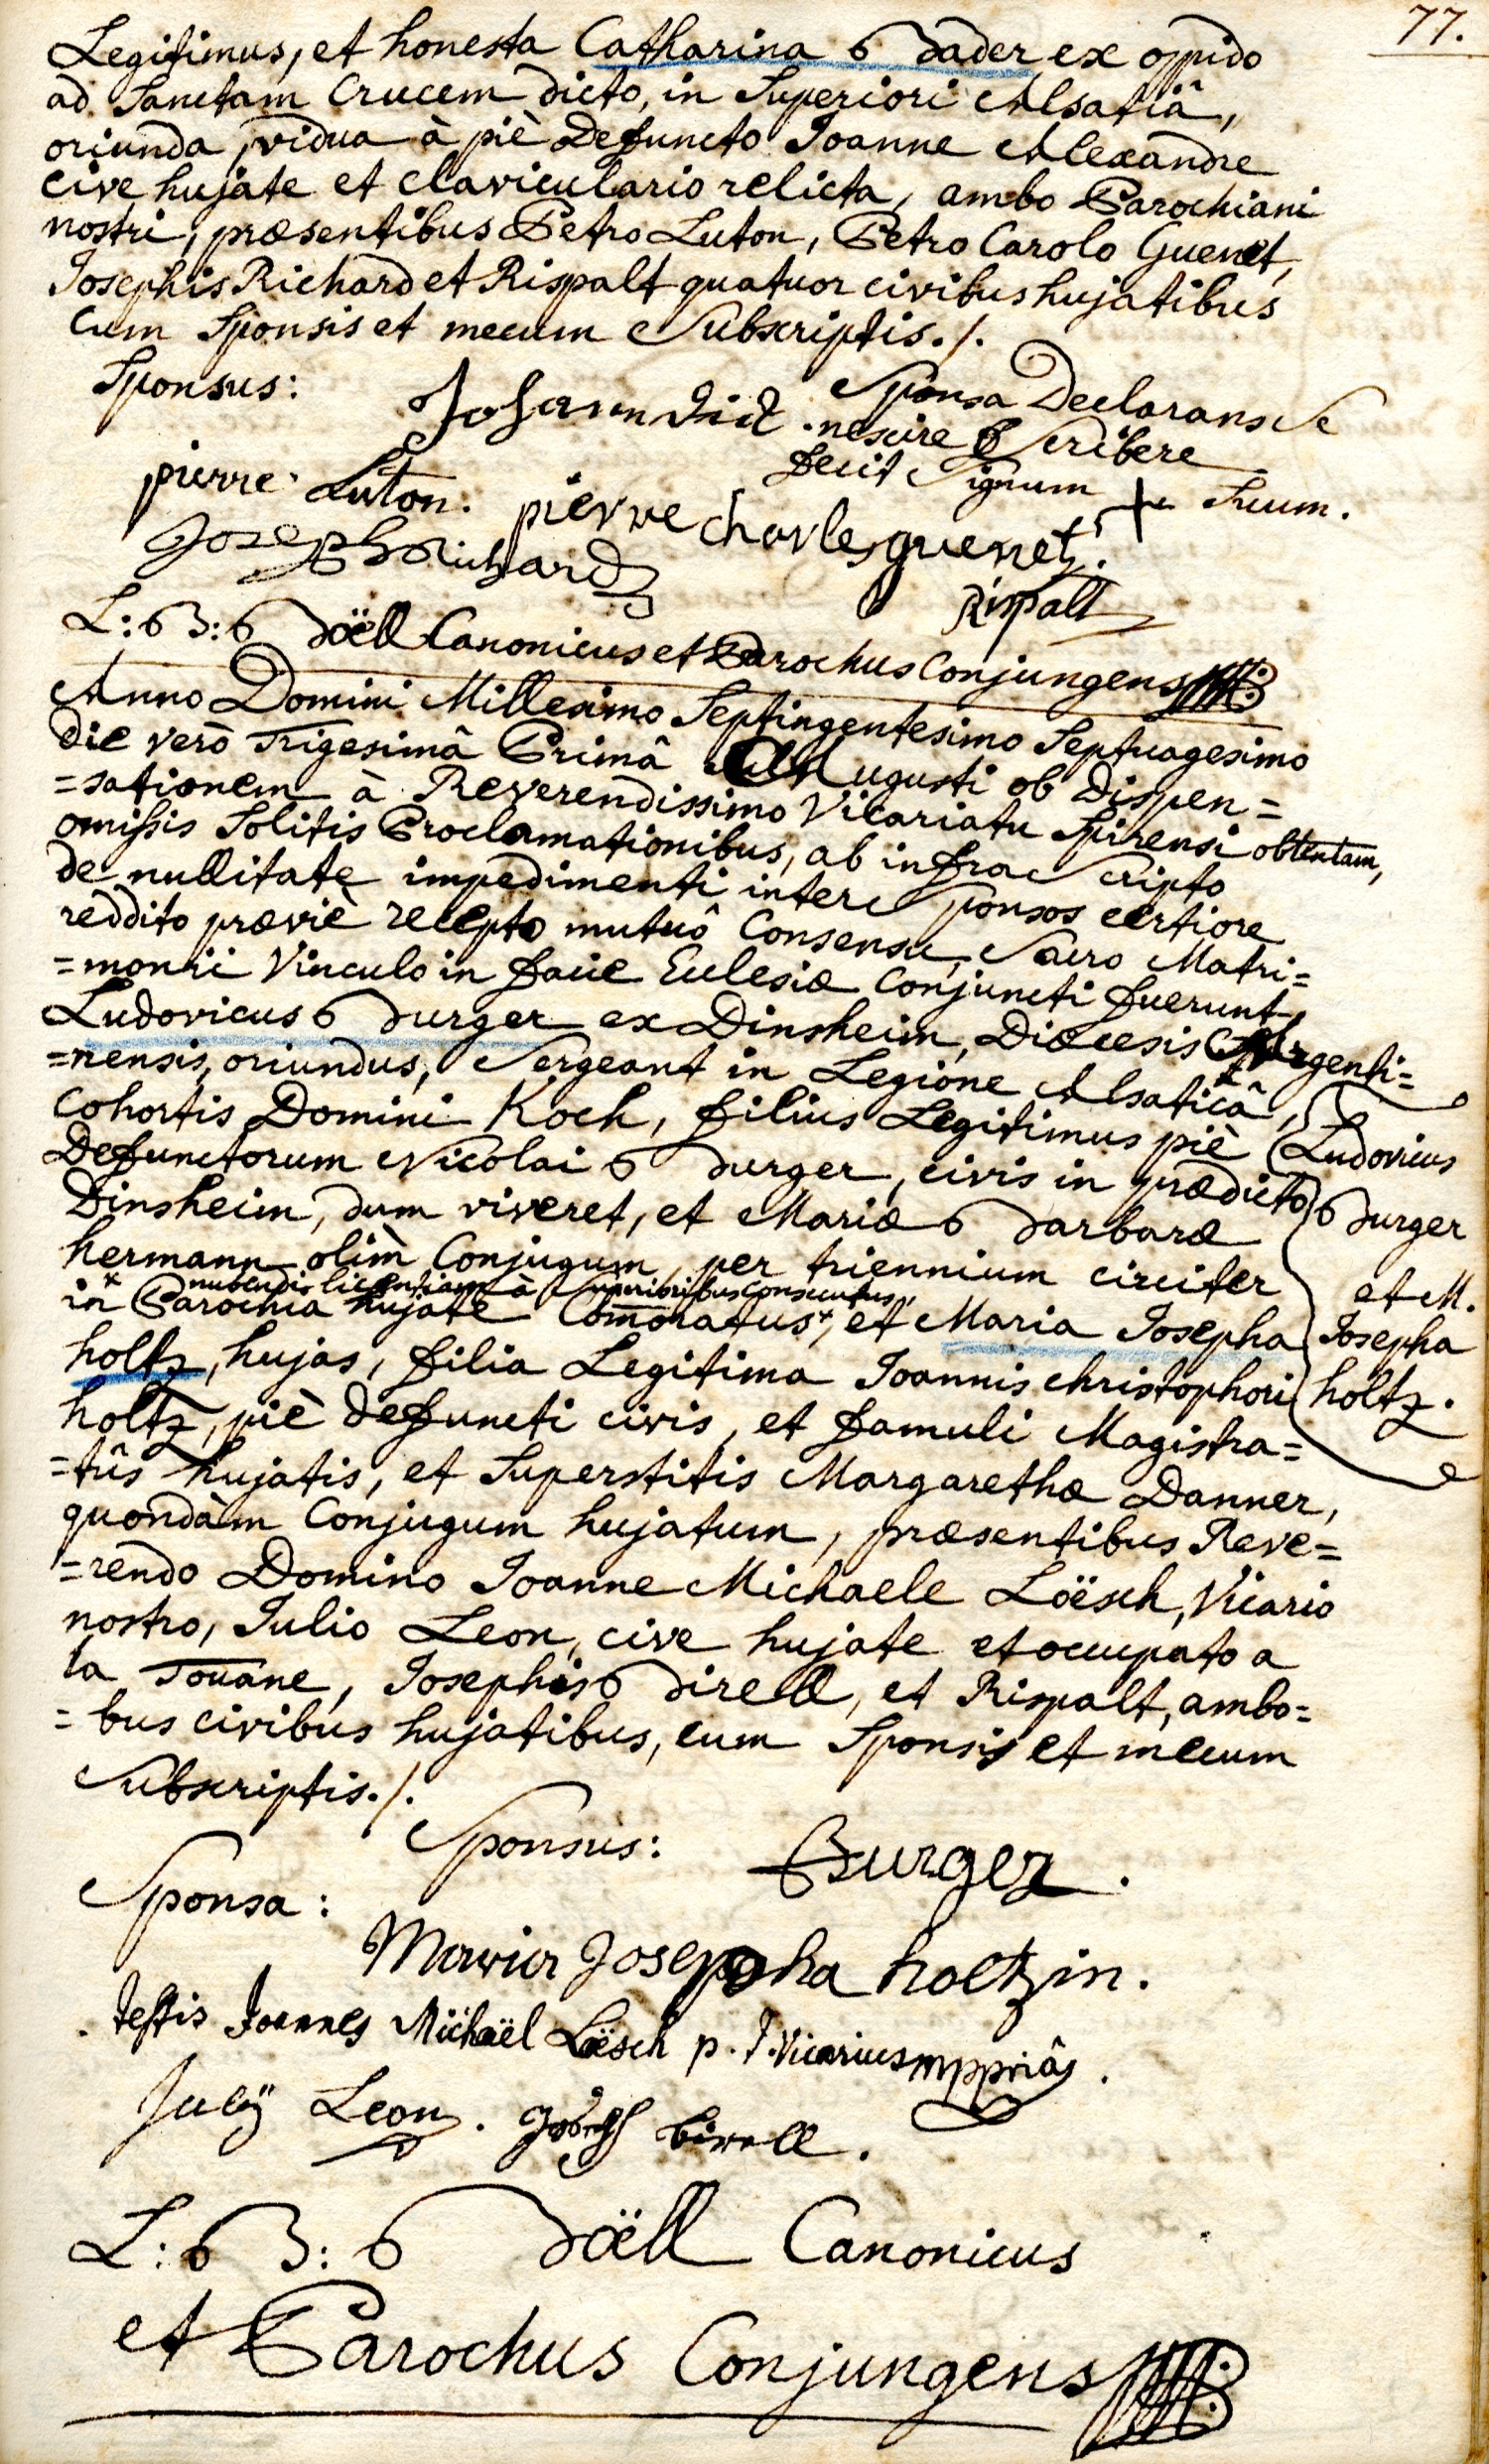 77.
Legitimus, et honesta Catharina Bader ex oppido
ad Sanctam Crucem dicto, in Superiori Alsatiâ,
oriunda, vidua à piè Defuncto Joanne Alexandre
cive hujate et claviculario relicta, ambo Parochiani
nostri, præsentibus Petro Luton, Petro Carolo Guenet,
Josephis Richard et Rispalt quatuor civibus hujatibus
cum Sponsis et mecum Subscriptis./.
Sponsus: Johann
Sponsa Declarans Se
nescire Scribere
fecit Signum + Suum.
pierre Luton. pierre charles guenet.
Joseph Richard
Rispalt
L: B: Böell Canonicus et Parochus Conjungens
Anno Domini Millesimo Septingentesimo Septuagesimo
die verò Trigesimâ Primâ Augusti ob Dispen=
=sationem à Reverendissimo Vicariatu Spirensi obtentam,
omissis Solitis Proclamationibus, ab infra Scripto
de nullitate impedimenti inter Sponsos certiore
reddito præviè recepto mutuô Consensu, Sacro Matri=
=monii Vinculo in facie Ecclesiæ Conjuncti fuerunt,
Ludovicus Burger ex Dinsheim, Diœcesis Argenti=
=nensis, oriundus, Sergeant in Legione Alsaticâ,
Cohortis Domini Koch, filius Legitimus piè
Defunctorum Nicolai Burger, civis in prædicto
Dinsheim, dum viveret, et Mariæ Barbaræ
hermann olim Conjugum, per triennium circiter
x nubendi licentiam à Superioribus Consecutus,
in Parochia hujate Com̄oratus x, et Maria Josepha
holtz, hujas, filia Legitima Joannis christophori
holtz, piè defuncti civis, et famuli Magistra=
=tûs hujatis, et Superstitis Margarethæ Danner,
quondàm Conjugum hujatum, præsentibus Reve=
=rendo Domino Joanne Michaele Loësch, Vicario
nostro, Julio Leon, cive hujate et occupato a
la Touane, Josephis Birell, et Rispalt, ambo=
=bus civibus hujatibus, cum Sponsis et mecum
Subscriptis./.
Ludovicus
Burger
et M.
Josepha
holtz.
Sponsus: Burger.
Sponsa:
Maria Josepha holtzin.
testis Joannes Michaël Loësch p. t. Vicarius mppriâ.
Julÿ Leon. Joseph birell.
L: B: Böell Canonicus
et Parochus Conjungens